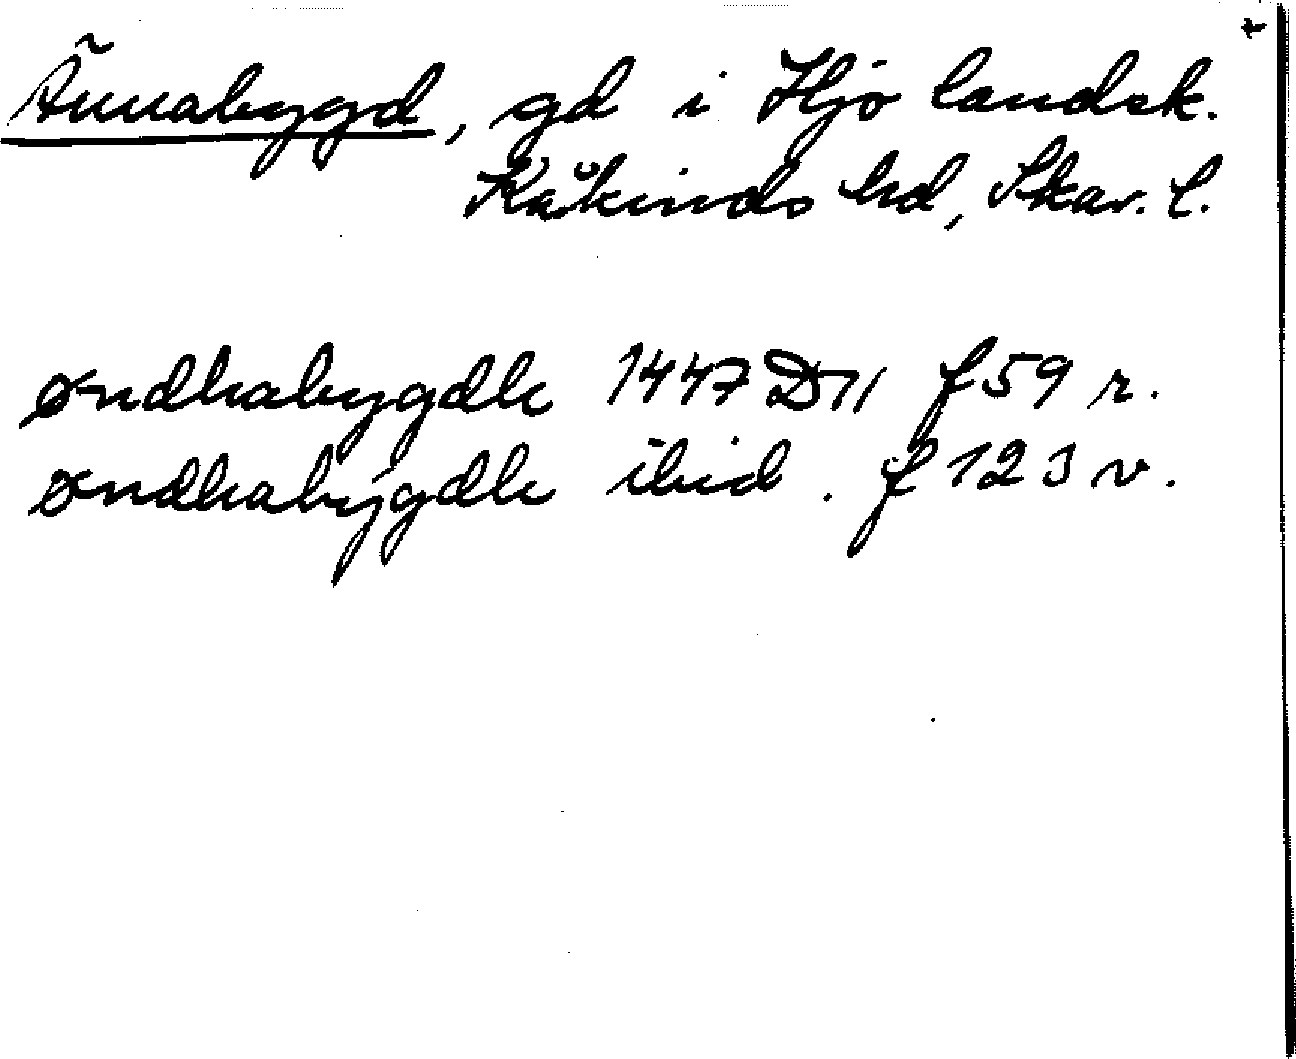 Ännabygd, gd i Hjo landsk.
Kåkinds hd, Skar. l.
øndhabygdh 1447 D11 f 59 r.
øndhabygdh ibid. f 123 v.